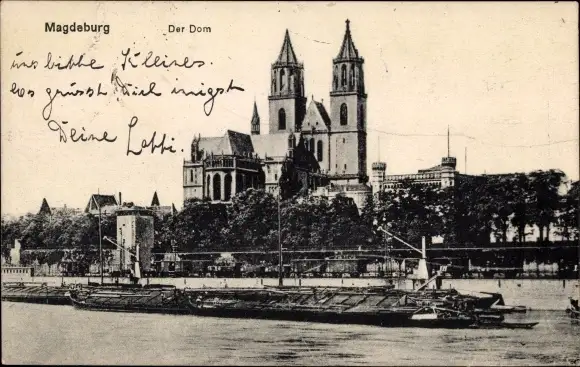 Magdeburg
Der Dom
uns bitte
es grüsst Dich innigst
Deine Lotti.